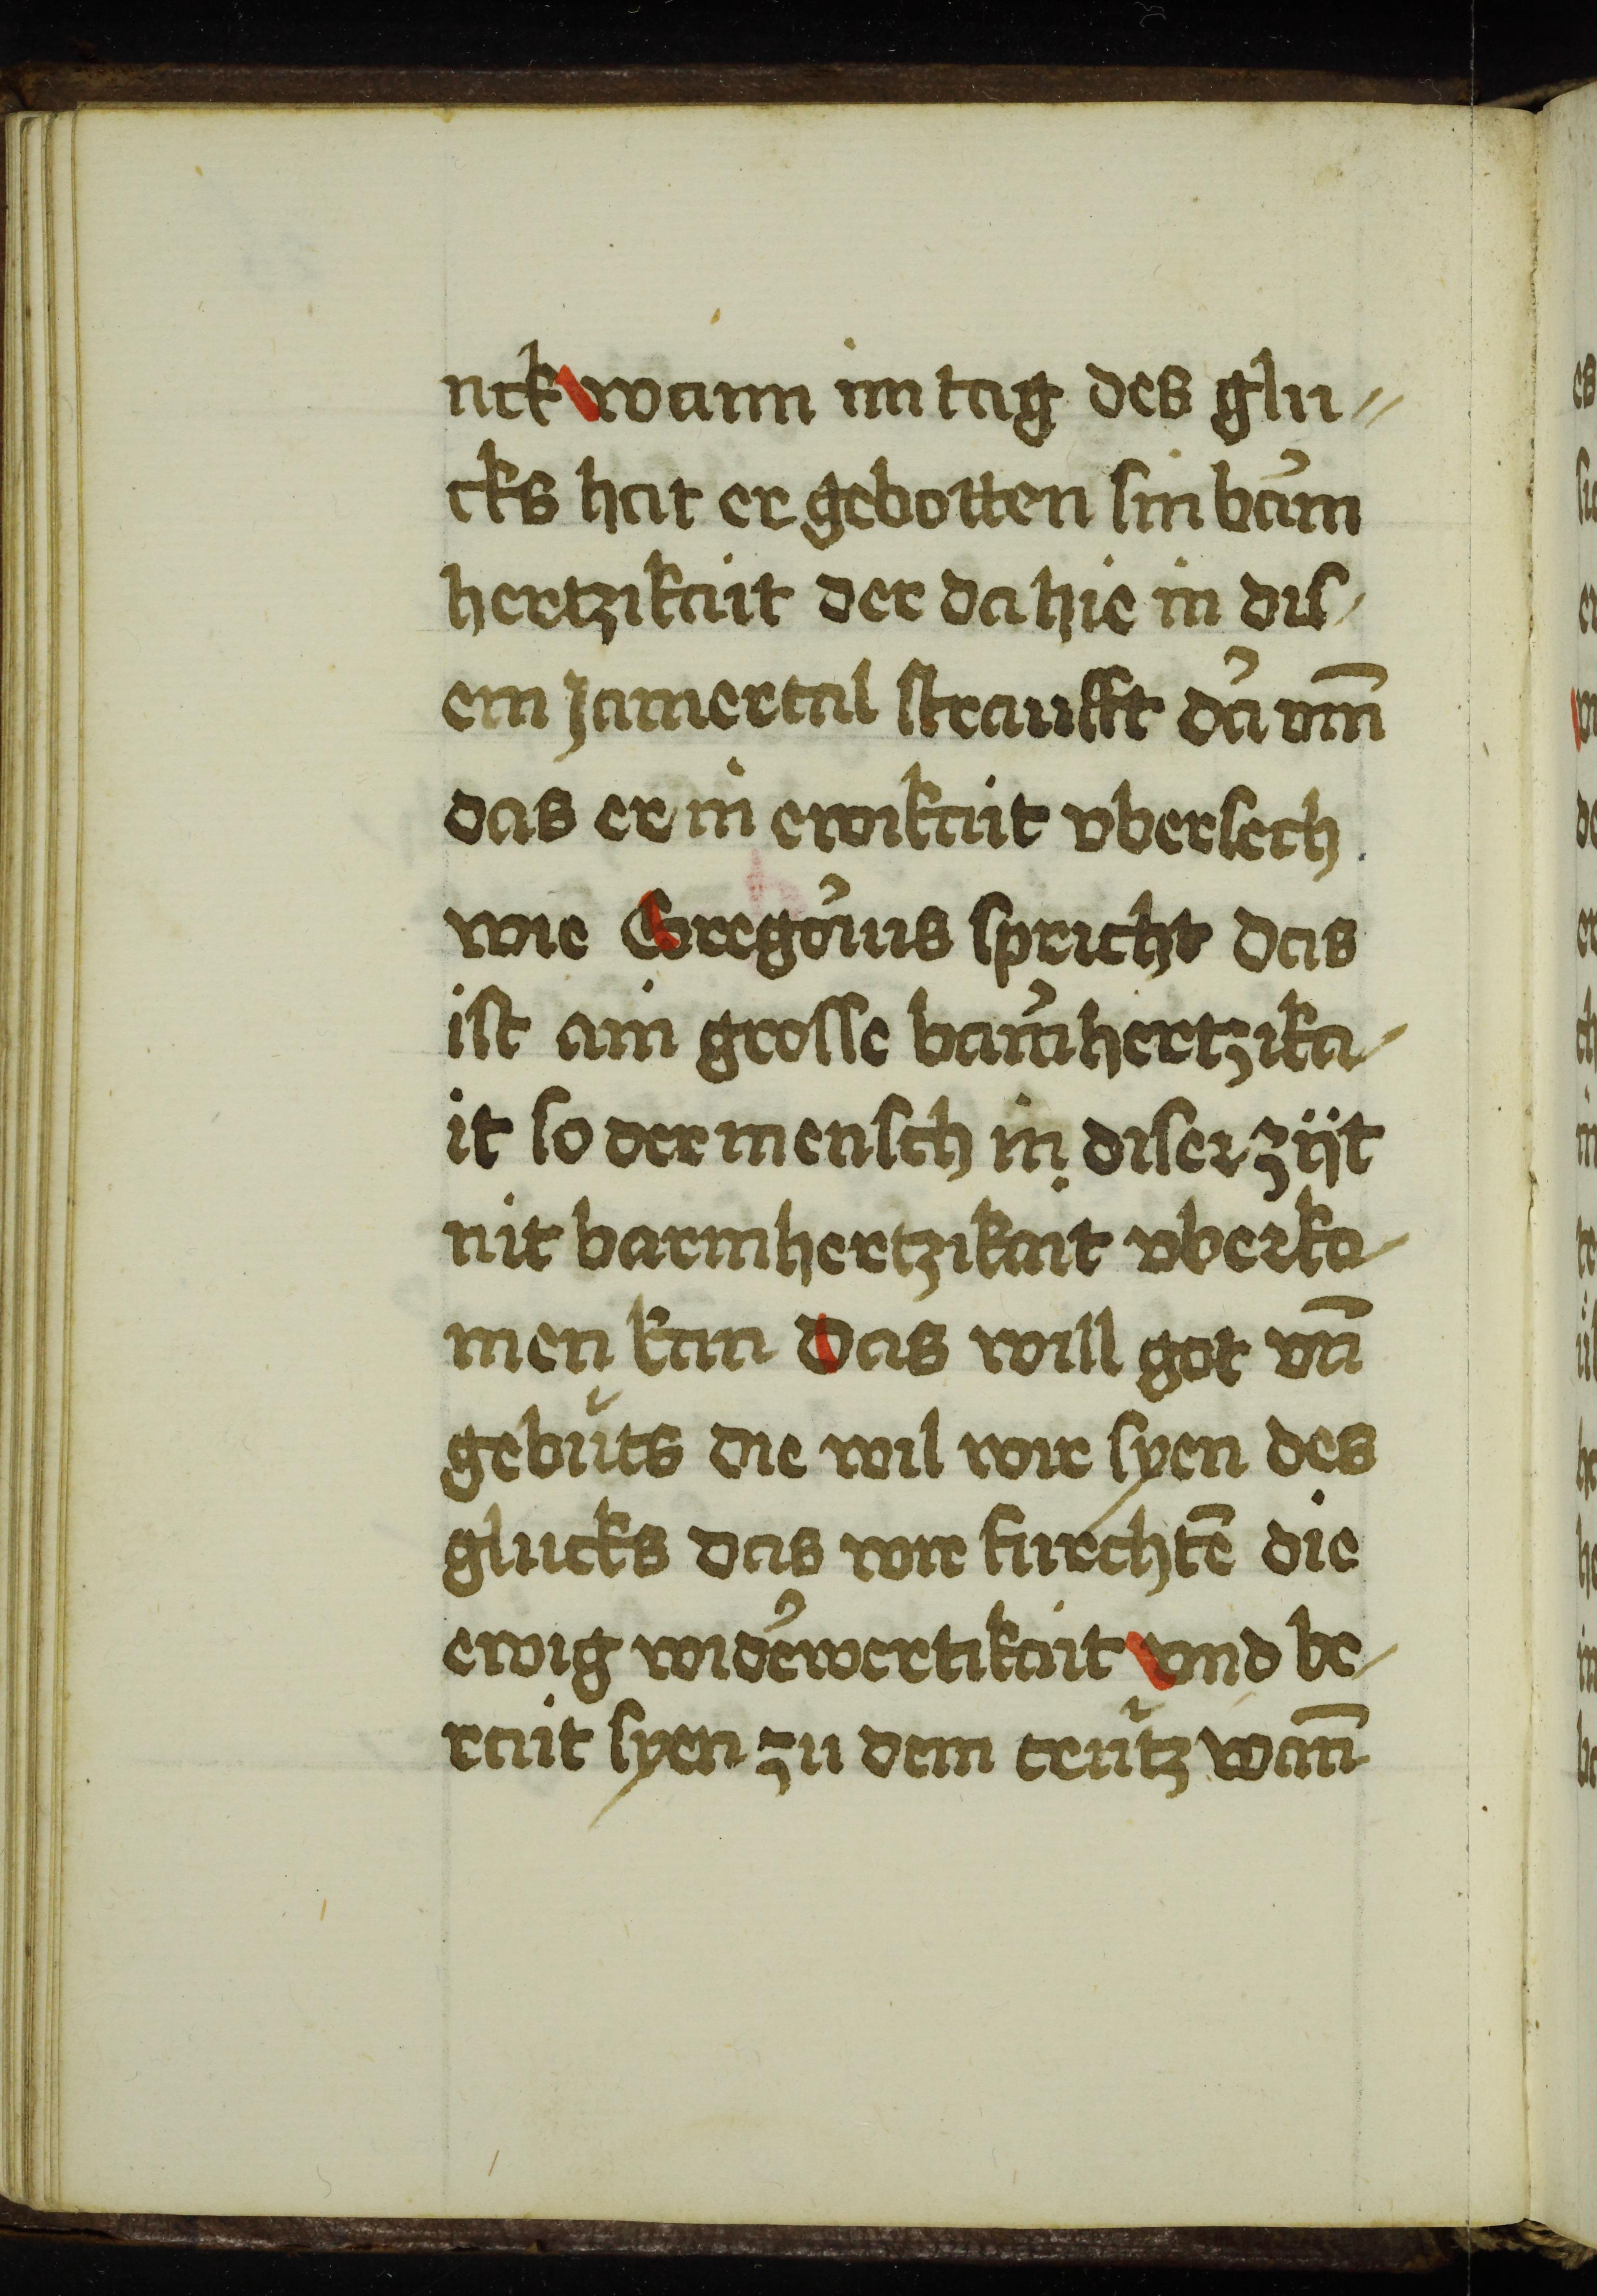 nck wann im tag des glu⸗
cks hat er gebotten sin baͬm
hertzikait der da hie in dis-
em jamertal straufft daͬ vm̄
das er in ewikait vbersech.
wie Gregoͬius spricht das
ist ain grosse baͬmhertzika-
it so der mensch in diser zijt
nit barmhertzikait vberko-
men kan Das will got vn̄
gebüts die wil wir syen des
glucks das wir furchtē die
ewig wideͬwertikait vnd be-
rait syen zu dem crütz wan̄